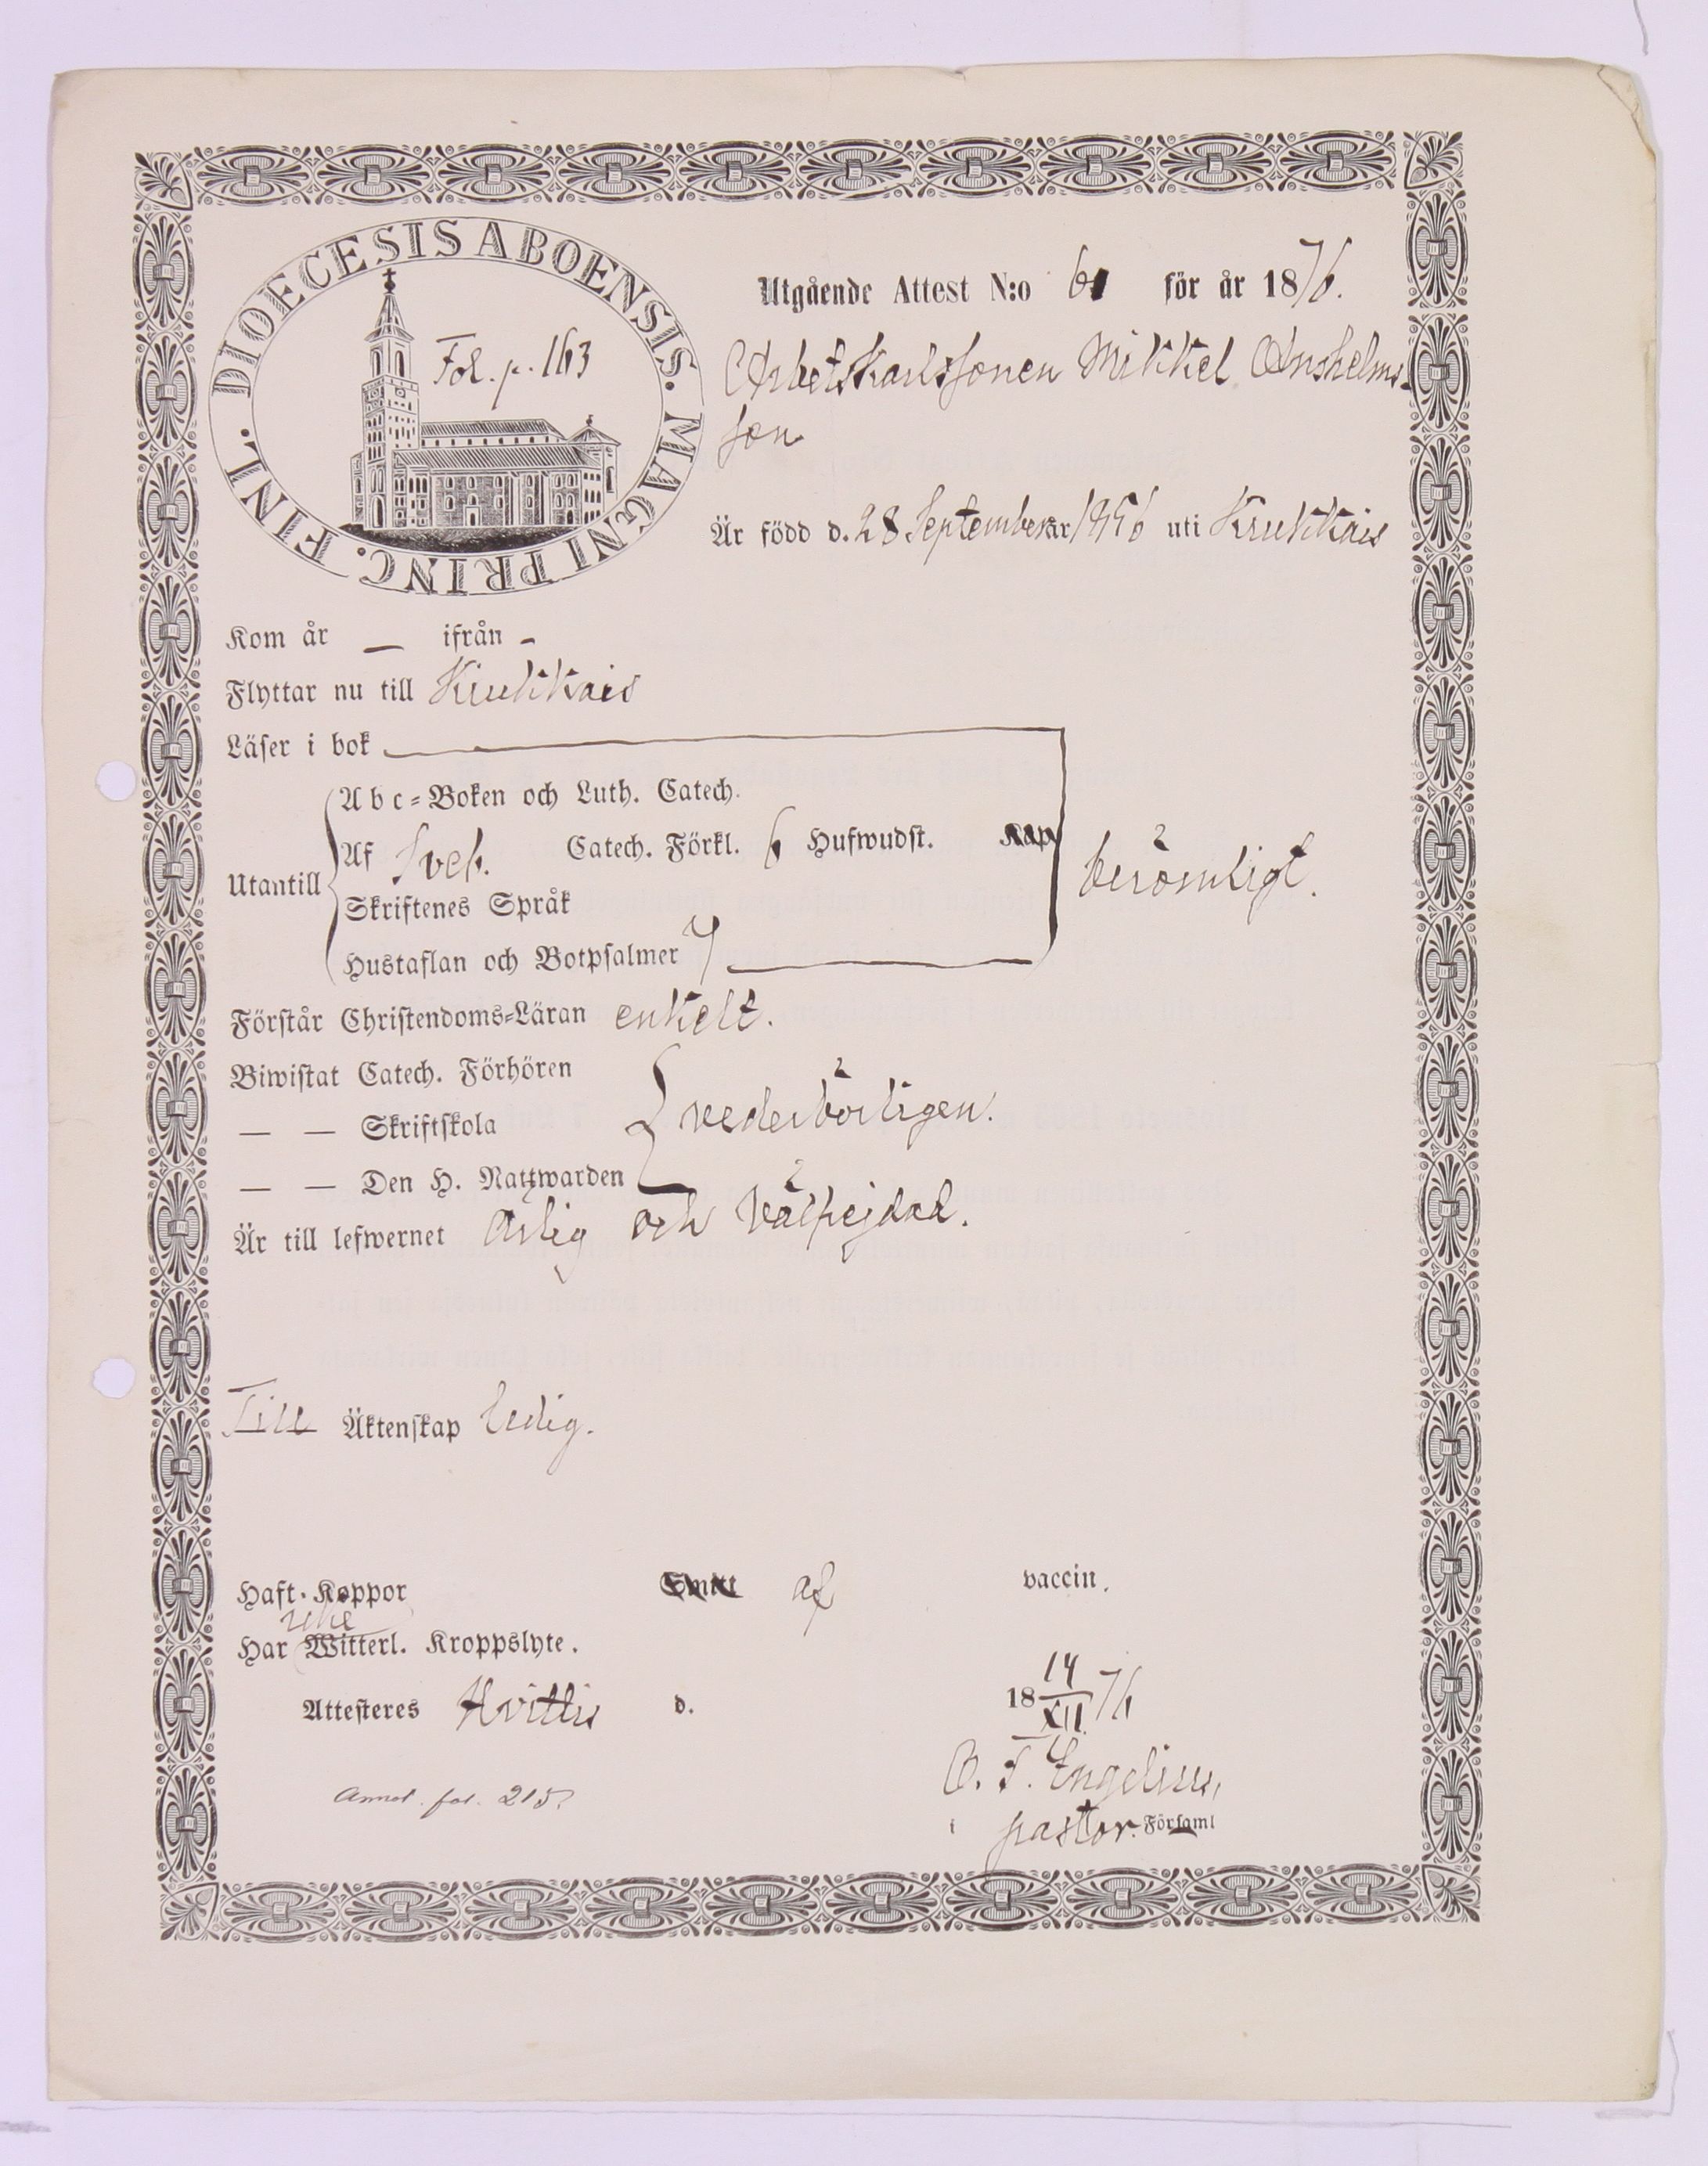 DIOECESIS ABOENSIS. MAGNI PRINC. FINL.
Fol. p. 163
Utgående Attest N:o 61 för år 1876.
Arbetskarlssonen Mikkel Anshelms-
son
Är född d. 28 September år 1856 uti Krukkais
Kom år — ifrån -
Flyttar nu till Krukkais
Läser i bok
Abc-Boken och Luth. Catech.
Af Sveb. Catech. Förkl. 6 Hufwudst. Kap
Utantill
berömligt.
Skriftenes Språk
Hustaflan och Botpsalmer 7
Förstår Christendoms-Läran enkelt.
Biwistat Catech. Förhören
— — Skriftskola
vederbörligen.
— — Den H. Nattwarden
Är till lefwernet ärlig och välfrejdad.
Till Äktenskap ledig.
Haft Koppor af vaccin.
icke
Har Witterl. Kroppslyte.
Attesteres Hvittis d. 18 14/XII 76
C. F. Engelius,
Annot. fol. 215.
i pastor. Församl